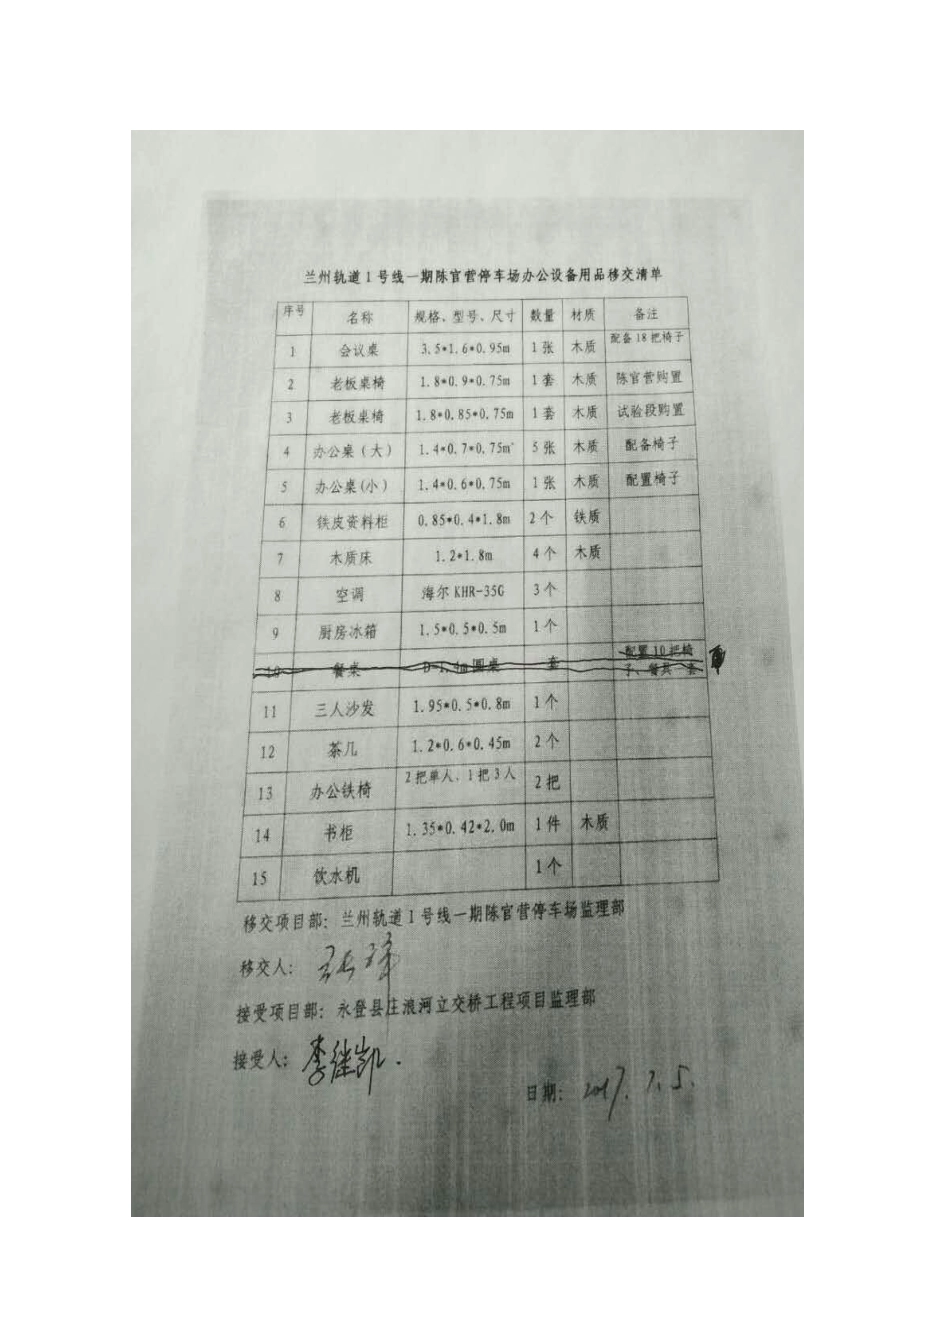 兰州轨道1号线一期陈官营停车场办公设备用品移交清单
序号 名称 规格、型号、尺寸 数量 材质 备注
1 会议桌 3.5*1.6*0.95m 1张 木质 配备18把椅子
2 老板桌椅 1.8*0.9*0.75m 1套 木质 陈官营购置
3 老板桌椅 1.8*0.85*0.75m 1套 木质 试验段购置
4 办公桌(大) 1.4*0.7*0.75m 5张 木质 配备椅子
5 办公桌(小) 1.4*0.6*0.75m 1张 木质 配置椅子
6 铁皮资料柜 0.85*0.4*1.8m 2个 铁质
7 木质床 1.2*1.8m 4个 木质
8 空调 海尔KHR-35G 3个
9 厨房冰箱 1.5*0.5*0.5m 1个
10 餐桌 D-1.4m圆桌 套 配置10把椅
子、餐具一套
11 三人沙发 1.95*0.5*0.8m 1个
12 茶几 1.2*0.6*0.45m 2个
13 办公铁椅 2把单人、1把3人 2把
14 书柜 1.35*0.42*2.0m 1件 木质
15 饮水机 1个
移交项目部:兰州轨道1号线一期陈官营停车场监理部
移交人:
接受项目部:永登县庄浪河立交桥工程项目监理部
接受人:李继凯.
日期:2017.7.5.